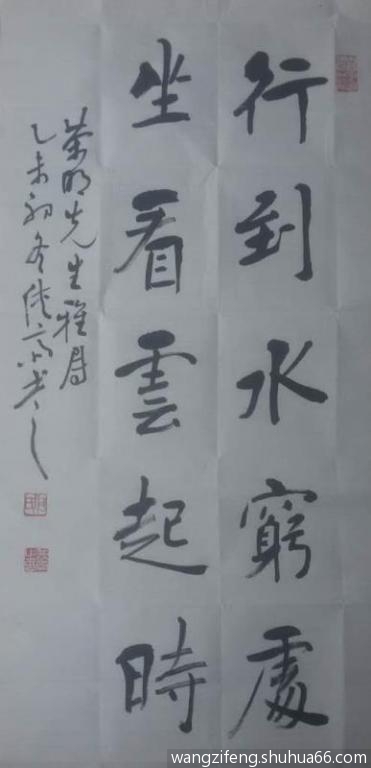 行到水窮處
坐看雲起時
荣明先生雅属
乙未初冬佳高书之
wangzifeng.shuhua66.com